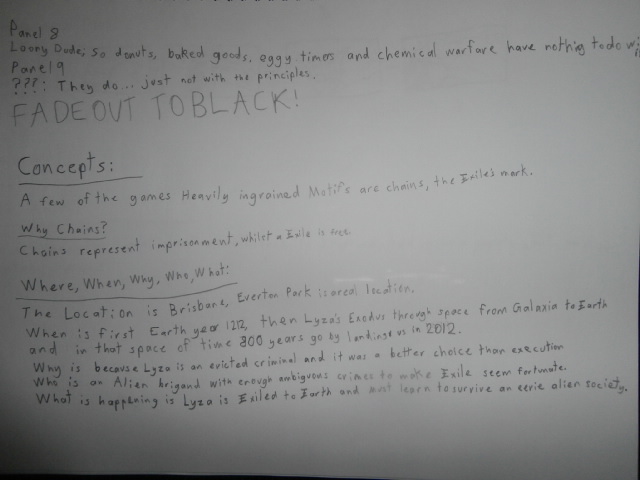 Panel 8
Loony Dude: So donuts, baked goods, eggy times and chemical warfare have nothing to do wi
Panel 9
???: They do... just not with the principles.
FADEOUT TO BLACK!
Concepts:
A few of the games Heavily ingrained Motifs are chains, the Exile's mark.
Why Chains?
Chains represent imprisonment, whilst a Exile is free
Where, When, Why, Who, What:
The Location is Brisbane, Everton Park is a real location.
When is first Earth year 1212, then Lyza's Exodus through space from Galaxia to Earth
and in that space of time 800 years go by landing us in 2012.
Why is because Lyza is an evicted criminal and it was a better choice than execution
Who is an Alien brigand with enough ambiguous crimes to make Exile seem fortunate.
What is happening is Lyza is Exiled to Earth and must learn to survive an eerie alien society.